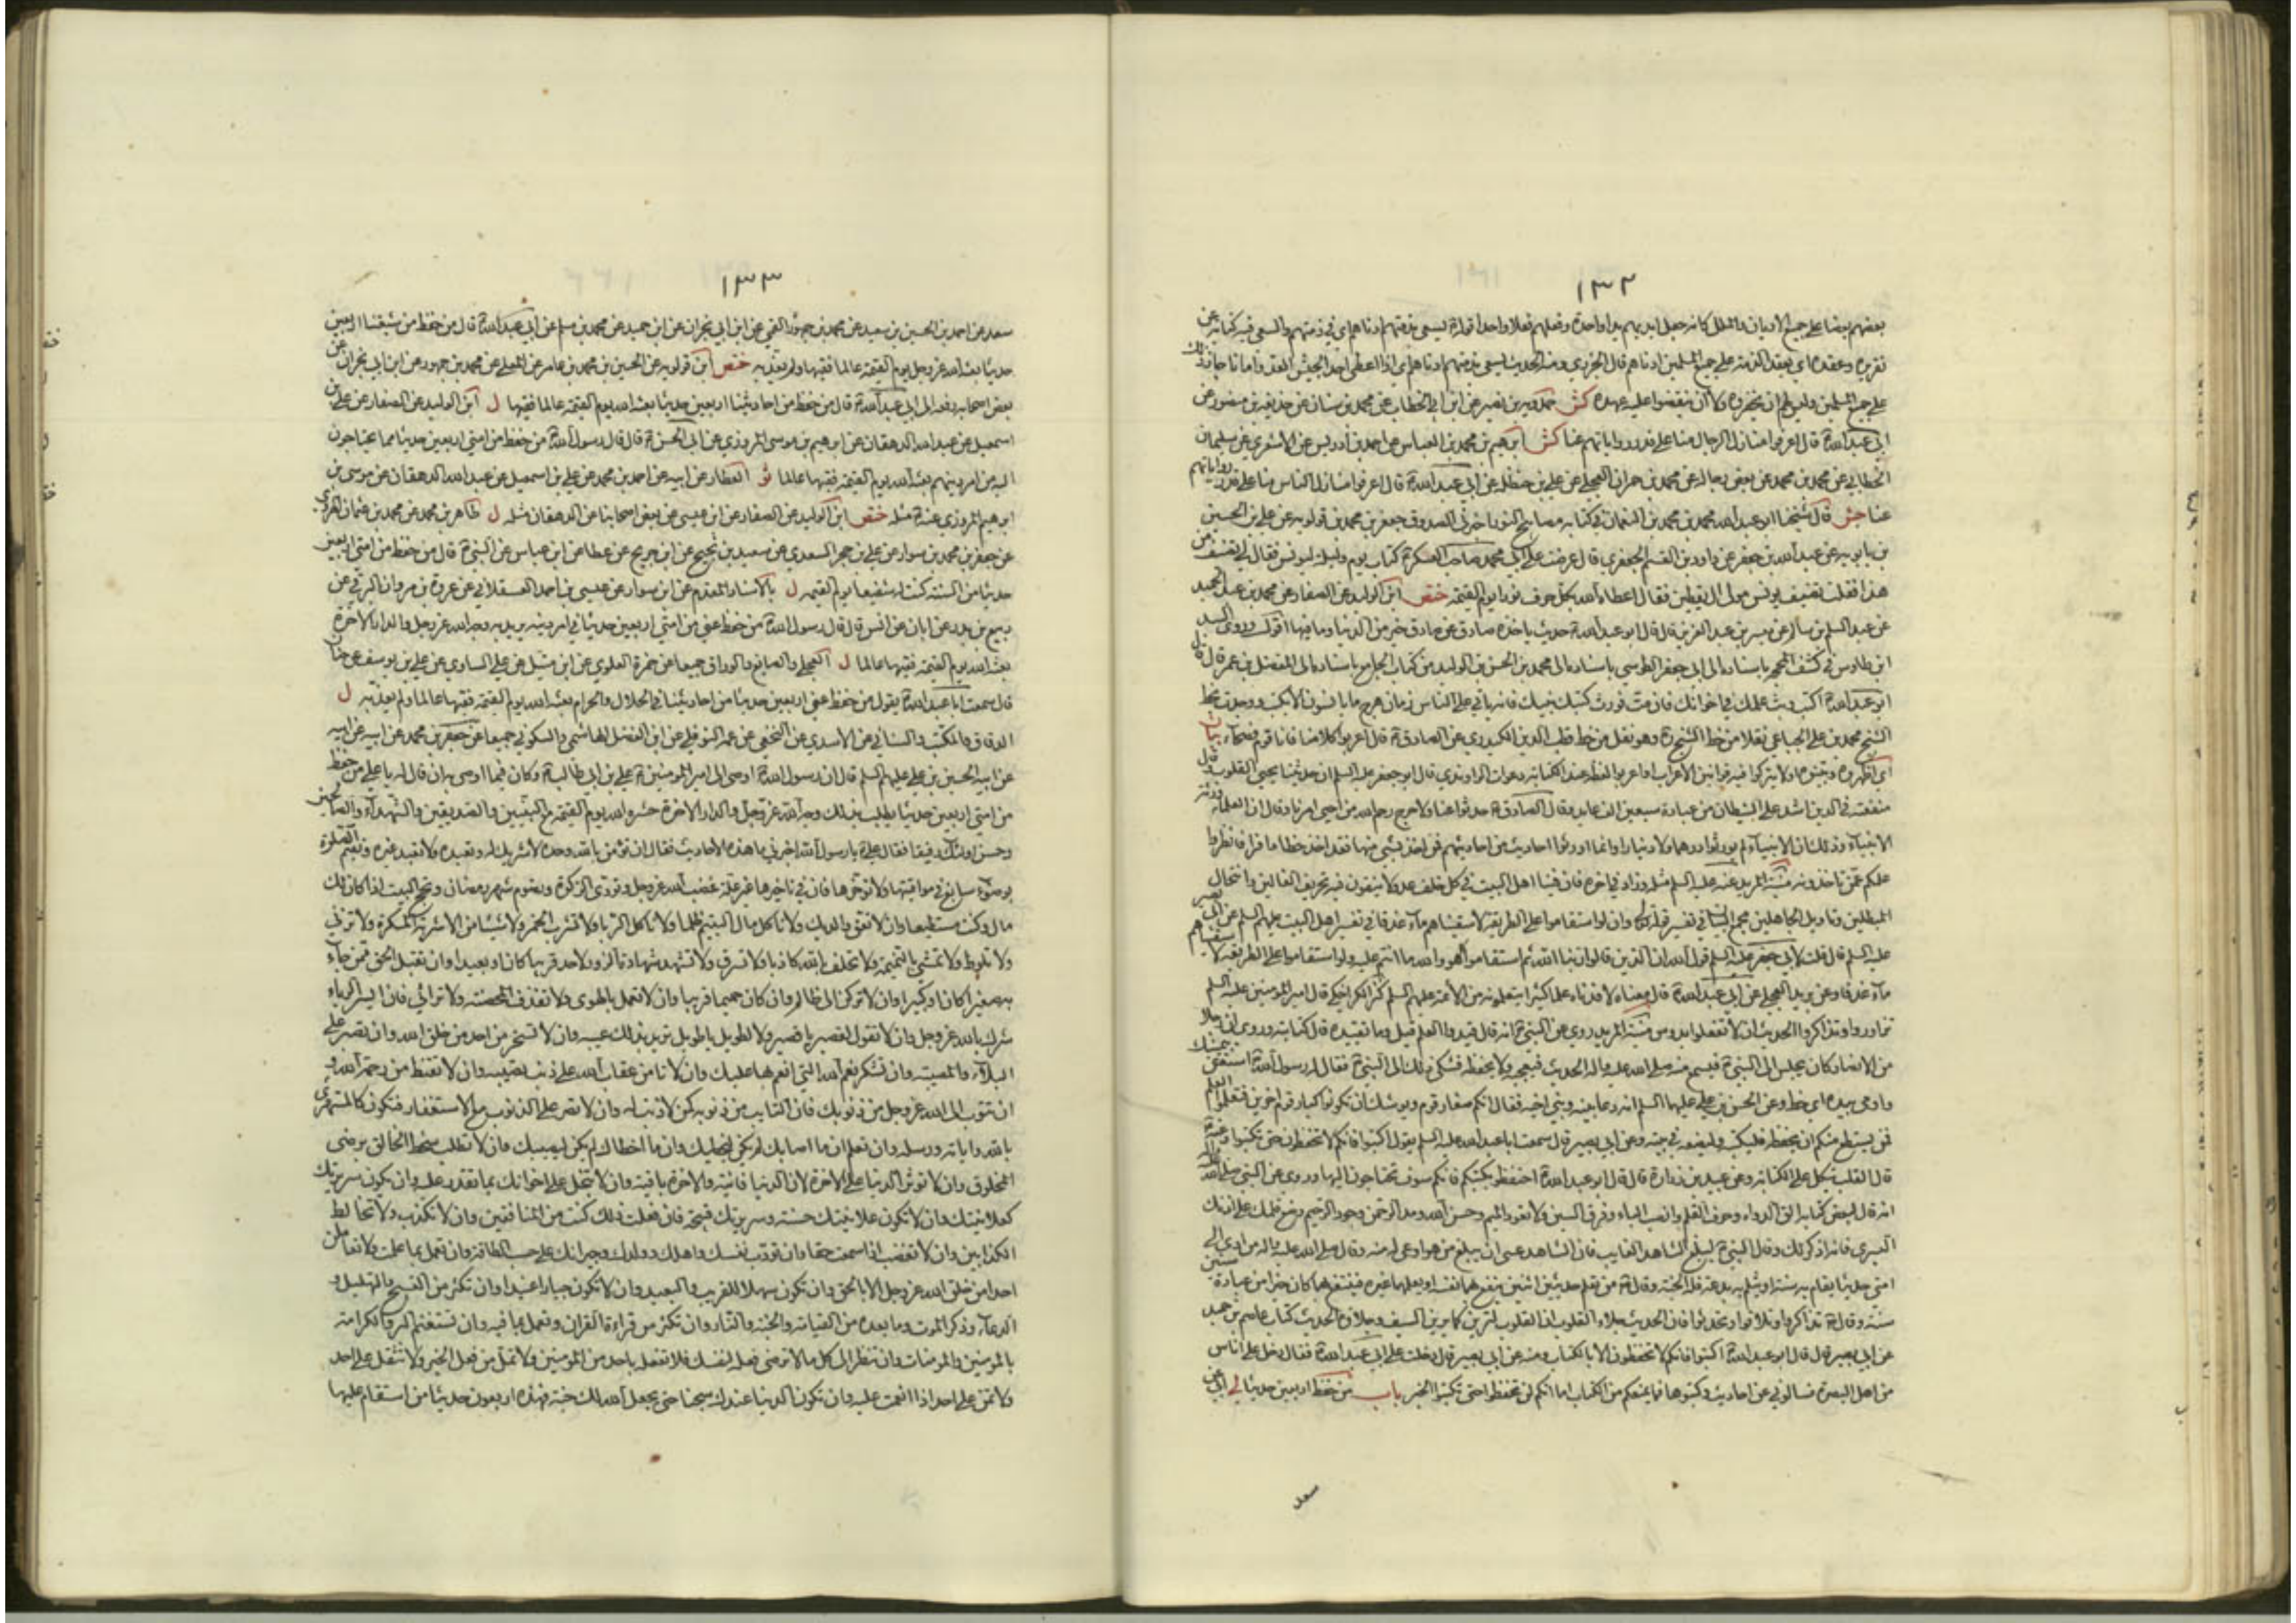 ١٣٢
بعضهم بعضا على جميع الاديان والملل كانه جعل ايديهم يدا واحدة وفعلهم فعلا واحدا قوله ع يسعى بذمتهم ادناهم اي في ذمتهم والسعي فيه كناية عن
تقريره وعقده اي يعقد الذمة على جميع المسلمين ادناهم قال الجزري ومنه الحديث يسعى بذمتهم ادناهم اي اذا اعطى احد الجيش العدو امانا جاز ذلك
على جميع المسلمين وليس لهم ان يخفروه ولا ان ينقضوا عليه عهده كش حمدويه بن نصير عن ابن ابي الخطاب عن محمد بن سنان عن حذيفة بن منصور عن
ابي عبد الله ع قال اعرفوا منازل الرجال منا على قدر رواياتهم عنا كش ابرهيم بن محمد بن العباس عن احمد بن ادريس عن الاشعري عن سليمان
الخطابي عن محمد بن محمد عن بعض رجاله عن محمد بن حمران العجلي عن علي بن حنظله عن ابي عبد الله ع قال اعرفوا منازل الناس منا على قدر رواياتهم
عنا جش قال شيخنا ابو عبد الله محمد بن محمد بن النعمان في كتابه مصابيح النور اخبرني الصدوق جعفر بن محمد بن قولويه عن علي بن الحسين
بن بابويه عن عبد الله بن جعفر عن داود بن القسم الجعفري قال عرضت على ابي محمد صاحب العسكر ع كتاب يوم وليلة ليونس فقال لي تصنيف من
هذا فقلت تصنيف يونس مولى ال يقطين فقال اعطاه الله بكل حرف نورا يوم القيمة ختص ابن الوليد عن الصفار عن محمد بن عبد الحميد
عن عبد السلم بن سالم عن ميسر بن عبد العزيز قال قال ابو عبد الله ع حديث ياخذه صادق عن صادق خير من الدنيا وما فيها اقول وروى السيد
ابن طاوس في كشف المحجه باسناده الى ابي جعفر الطوسي باسناده الى محمد بن الحسن بن الوليد من كتاب الجامع باسناده الى المفضل بن عمر قال قال
ابو عبد الله ع اكتب وبث علمك في اخوانك فان مت فورث كتبك بنيك فانه ياتي على الناس زمان هرج ما يانسون الا بكتبهم ووجدت بخط
الشيخ محمد بن علي الجباعي نقلا من خط الشهيد ره وهو نقل من خط قطب الدين الكيدري عن الصادق ع قال اعربوا كلامنا فانا قوم فصحاء بيان
اي اظهروه وبينوه او لا تتركوا فيه قوانين الاعراب او اعربوا لفظه عند الكتابة دعوات الراوندي قال ابو جعفر عليه السلم ان حديثنا يحيي القلوب وقال
منفعته في الدين اشد على الشيطان من عبادة سبعين الف عابد وقال الصادق ع حدثوا عنا ولا حرج رحم الله من احيى امرنا وقال ان العلماء ورثة
الانبياء وذلك ان الانبياء لم يورثوا درهما ولا دينارا وانما اورثوا احاديث من احاديثهم فمن اخذ بشيء منها فقد اخذ حظا وافرا فانظروا
علمكم عمن تاخذونه منية المريد عنه عليه السلم مثله وزاد في اخره فان فينا اهل البيت في كل خلف عدولا ينفون عنه تحريف الغالين وانتحال
المبطلين وتاويل الجاهلين مجمع البيان في تفسير قوله تع وان لو استقاموا على الطريقة لاسقيناهم ماء غدقا في تفسير اهل البيت عليهم السلم عن ابي بصير
عليه السلم قال قلت لابي جعفر عليه السلم قول الله ان الذين قالوا ربنا الله ثم استقاموا قال هو والله ما انتم عليه ولو استقاموا على الطريقة لاسقيناهم
ماء غدقا وعن بريد العجلي عن ابي عبد الله ع قال معناه لافدناهم علما كثيرا يتعلمونه من الائمة عليهم السلم كنز الكراجكي قال امير المؤمنين عليه السلم
تزاوروا وتذاكروا الحديث ان لا تفعلوا يدرس منية المريد روي عن النبي ص انه قال قيدوا العلم قيل وما تقييده قال كتابته وروي ان رجلا
من الانصار كان يجلس الى النبي ص فيسمع منه صلى الله عليه واله الحديث فيعجبه ولا يحفظه فشكى ذلك الى النبي ص فقال له رسول الله ص استعن بيمينك
واومى بيده اي خط وعن الحسن بن علي عليهما السلم انه دعا بنيه وبني اخيه فقال انكم صغار قوم ويوشك ان تكونوا كبار قوم اخرين فتعلموا العلم
فمن يستطع منكم ان يحفظه فليكتبه وليضعه في بيته وعن ابي بصير قال سمعت ابا عبد الله عليه السلم يقول اكتبوا فانكم لا تحفظون حتى تكتبوا وعنه ع
قال القلب يتكل على الكتابة وعن عبيد بن زرارة قال قال ابو عبد الله ع احتفظوا بكتبكم فانكم سوف تحتاجون اليها وروي عن النبي صلى الله عليه واله
انه قال لبعض كتابه الق الدواة وحرف القلم وانصب الباء وفرق السين ولا تعور الميم وحسن الله ومد الرحمن وجود الرحيم وضع قلمك على اذنك
اليسرى فانه اذكر لك وقال النبي ص ليبلغ الشاهد الغايب فان الشاهد عسى ان يبلغ من هو اوعى له منه وقال صلى الله عليه واله من ادى الى
امتي حديثا يقام به سنة او يثلم به بدعة فله الجنة وقال ص من تعلم حديثين اثنين ينفع بهما نفسه او يعلمهما غيره فينتفع بهما كان خيرا من عبادة ستين
سنة وقال ص تذاكروا وتلاقوا وتحدثوا فان الحديث جلاء القلوب ان القلوب لترين كما يرين السيف وجلاؤه الحديث كتاب عاصم بن حميد
عن ابي بصير قال قال ابو عبد الله ع اكتبوا فانكم لا تحفظون الا بالكتاب ومنه عن ابي بصير قال دخلت على ابي عبد الله ع فقال دخل على اناس
من اهل البصرة فسالوني عن احاديث وكتبوها فما يمنعكم من الكتاب اما انكم لن تحفظوا حتى تكتبوا الخبر باب من حفظ اربعين حديثا لي ابي عن
سعد
١٣٣
سعد عن احمد بن الحسين بن سعيد عن محمد بن جمهور القمي عن ابن ابي نجران عن ابن حميد عن محمد بن مسلم عن ابي عبد الله ع قال من حفظ من شيعتنا اربعين
حديثا بعثه الله عز وجل يوم القيمة عالما فقيها ولم يعذبه ختص ابن قولويه عن الحسين بن محمد بن عامر عن المعلى عن محمد بن جمهور عن ابن ابي نجران عن
بعض اصحابه رفعه الى ابي عبد الله ع قال من حفظ من احاديثنا اربعين حديثا بعثه الله يوم القيمة عالما فقيها ل ابن الوليد عن الصفار عن علي بن
اسمعيل عن عبد الله الدهقان عن ابرهيم بن موسى المروزي عن ابي الحسن ع قال قال رسول الله ص من حفظ من امتي اربعين حديثا مما يحتاجون
اليه من امر دينهم بعثه الله يوم القيمة فقيها عالما ثو العطار عن ابيه عن احمد بن محمد عن علي بن اسمعيل عن عبد الله الدهقان عن موسى بن
ابرهيم المروزي عنه ع مثله ختص ابن الوليد عن الصفار عن ابن عيسى عن بعض اصحابنا عن الدهقان مثله ل طاهر بن محمد عن محمد بن عثمان الهروي
عن جعفر بن محمد بن سوار عن علي بن حجر السعدي عن سعيد بن نجيح عن ابن جريح عن عطا عن ابن عباس عن النبي ص قال من حفظ من امتي اربعين
حديثا من السنة كنت له شفيعا يوم القيمة ل بالاسناد المقدم عن ابن سوار عن عيسى بن احمد العسقلاني عن عروة بن مروان البرقي عن
ربيع بن بدر عن ابان عن انس قال قال رسول الله ص من حفظ عني من امتي اربعين حديثا في امر دينه يريد به وجه الله عز وجل والدار الاخرة
بعثه الله يوم القيمة فقيها عالما ل العجلي والصايغ والوراق جميعا عن حمزة العلوي عن ابن متيل عن علي الساوي عن علي بن يوسف عن حنان
قال سمعت ابا عبد الله ع يقول من حفظ عني اربعين حديثا من احاديثنا في الحلال والحرام بعثه الله يوم القيمة فقيها عالما ولم يعذبه ل
الدقاق والمكتب والسناني عن الاسدي عن النخعي عن عمه النوفلي عن ابن الفضل الهاشمي والسكوني جميعا عن جعفر بن محمد عن ابيه عن ابيه
عن ابيه الحسين بن علي عليهم السلم قال ان رسول الله ص اوصى الى امير المؤمنين ع علي بن ابي طالب ع وكان فيما اوصى به ان قال له يا علي من حفظ
من امتي اربعين حديثا يطلب بذلك وجه الله عز وجل والدار الاخرة حشره الله يوم القيمة مع النبيين والصديقين والشهداء والصالحين
وحسن اولئك رفيقا فقال علي ع يا رسول الله اخبرني ما هذه الاحاديث فقال ان تؤمن بالله وحده لا شريك له وتعبده ولا تعبد غيره وتقيم الصلوة
بوضوء سابغ في مواقيتها ولا تؤخرها فان في تاخيرها من غير علة غضب الله عز وجل وتؤدي الزكوة وتصوم شهر رمضان وتحج البيت اذا كان لك
مال وكنت مستطيعا وان لا تعق والديك ولا تاكل مال اليتيم ظلما ولا تاكل الربا ولا تشرب الخمر ولا شيئا من الاشربة المسكرة ولا تزني
ولا تلوط ولا تمشي بالنميمة ولا تحلف بالله كاذبا ولا تسرق ولا تشهد شهادة الزور لاحد قريبا كان او بعيدا وان تقبل الحق ممن جاء
به صغيرا كان او كبيرا وان لا تركن الى ظالم وان كان حميما قريبا وان لا تعمل بالهوى ولا تقذف المحصنة ولا ترائي فان ايسر الرياء
شرك بالله عز وجل وان لا تقول لقصير يا قصير ولا لطويل يا طويل تريد بذلك عيبه وان لا تسخر من احد من خلق الله وان تصبر على
البلاء والمصيبة وان تشكر نعم الله التي انعم بها عليك وان لا تامن عقاب الله على ذنب تصيبه وان لا تقنط من رحمة الله و
ان تتوب الى الله عز وجل من ذنوبك فان التايب من ذنوبه كمن لا ذنب له وان لا تصر على الذنوب مع الاستغفار فتكون كالمستهزئ
بالله واياته ورسله وان تعلم ان ما اصابك لم يكن ليخطيك وان ما اخطاك لم يكن ليصيبك وان لا تطلب سخط الخالق برضى
المخلوق وان لا تؤثر الدنيا على الاخرة لان الدنيا فانية والاخرة باقية وان لا تبخل على اخوانك بما تقدر عليه وان يكون سريرتك
كعلانيتك وان لا تكون علانيتك حسنة وسريرتك قبيحة فان فعلت ذلك كنت من المنافقين وان لا تكذب ولا تخالط
الكذابين وان لا تغضب اذا سمعت حقا وان تؤدب نفسك واهلك وولدك وجيرانك على حسب الطاقة وان تعمل بما علمت ولا تعاملن
احدا من خلق الله عز وجل الا بالحق وان تكون سهلا للقريب والبعيد وان لا تكون جبارا عنيدا وان تكثر من التسبيح والتهليل و
الدعاء وذكر الموت وما بعده من القيامة والجنة والنار وان تكثر من قراءة القران وتعمل بما فيه وان تستغنم البر والكرامة
بالمؤمنين والمؤمنات وان تنظر الى كل ما لا ترضى فعله لنفسك فلا تفعله باحد من المؤمنين ولا تمل من فعل الخير ولا تثقل على احد
ولا تمن على احد اذا انعمت عليه وان تكون الدنيا عندك سجنا حتى يجعل الله لك جنة فهذه اربعون حديثا من استقام عليها